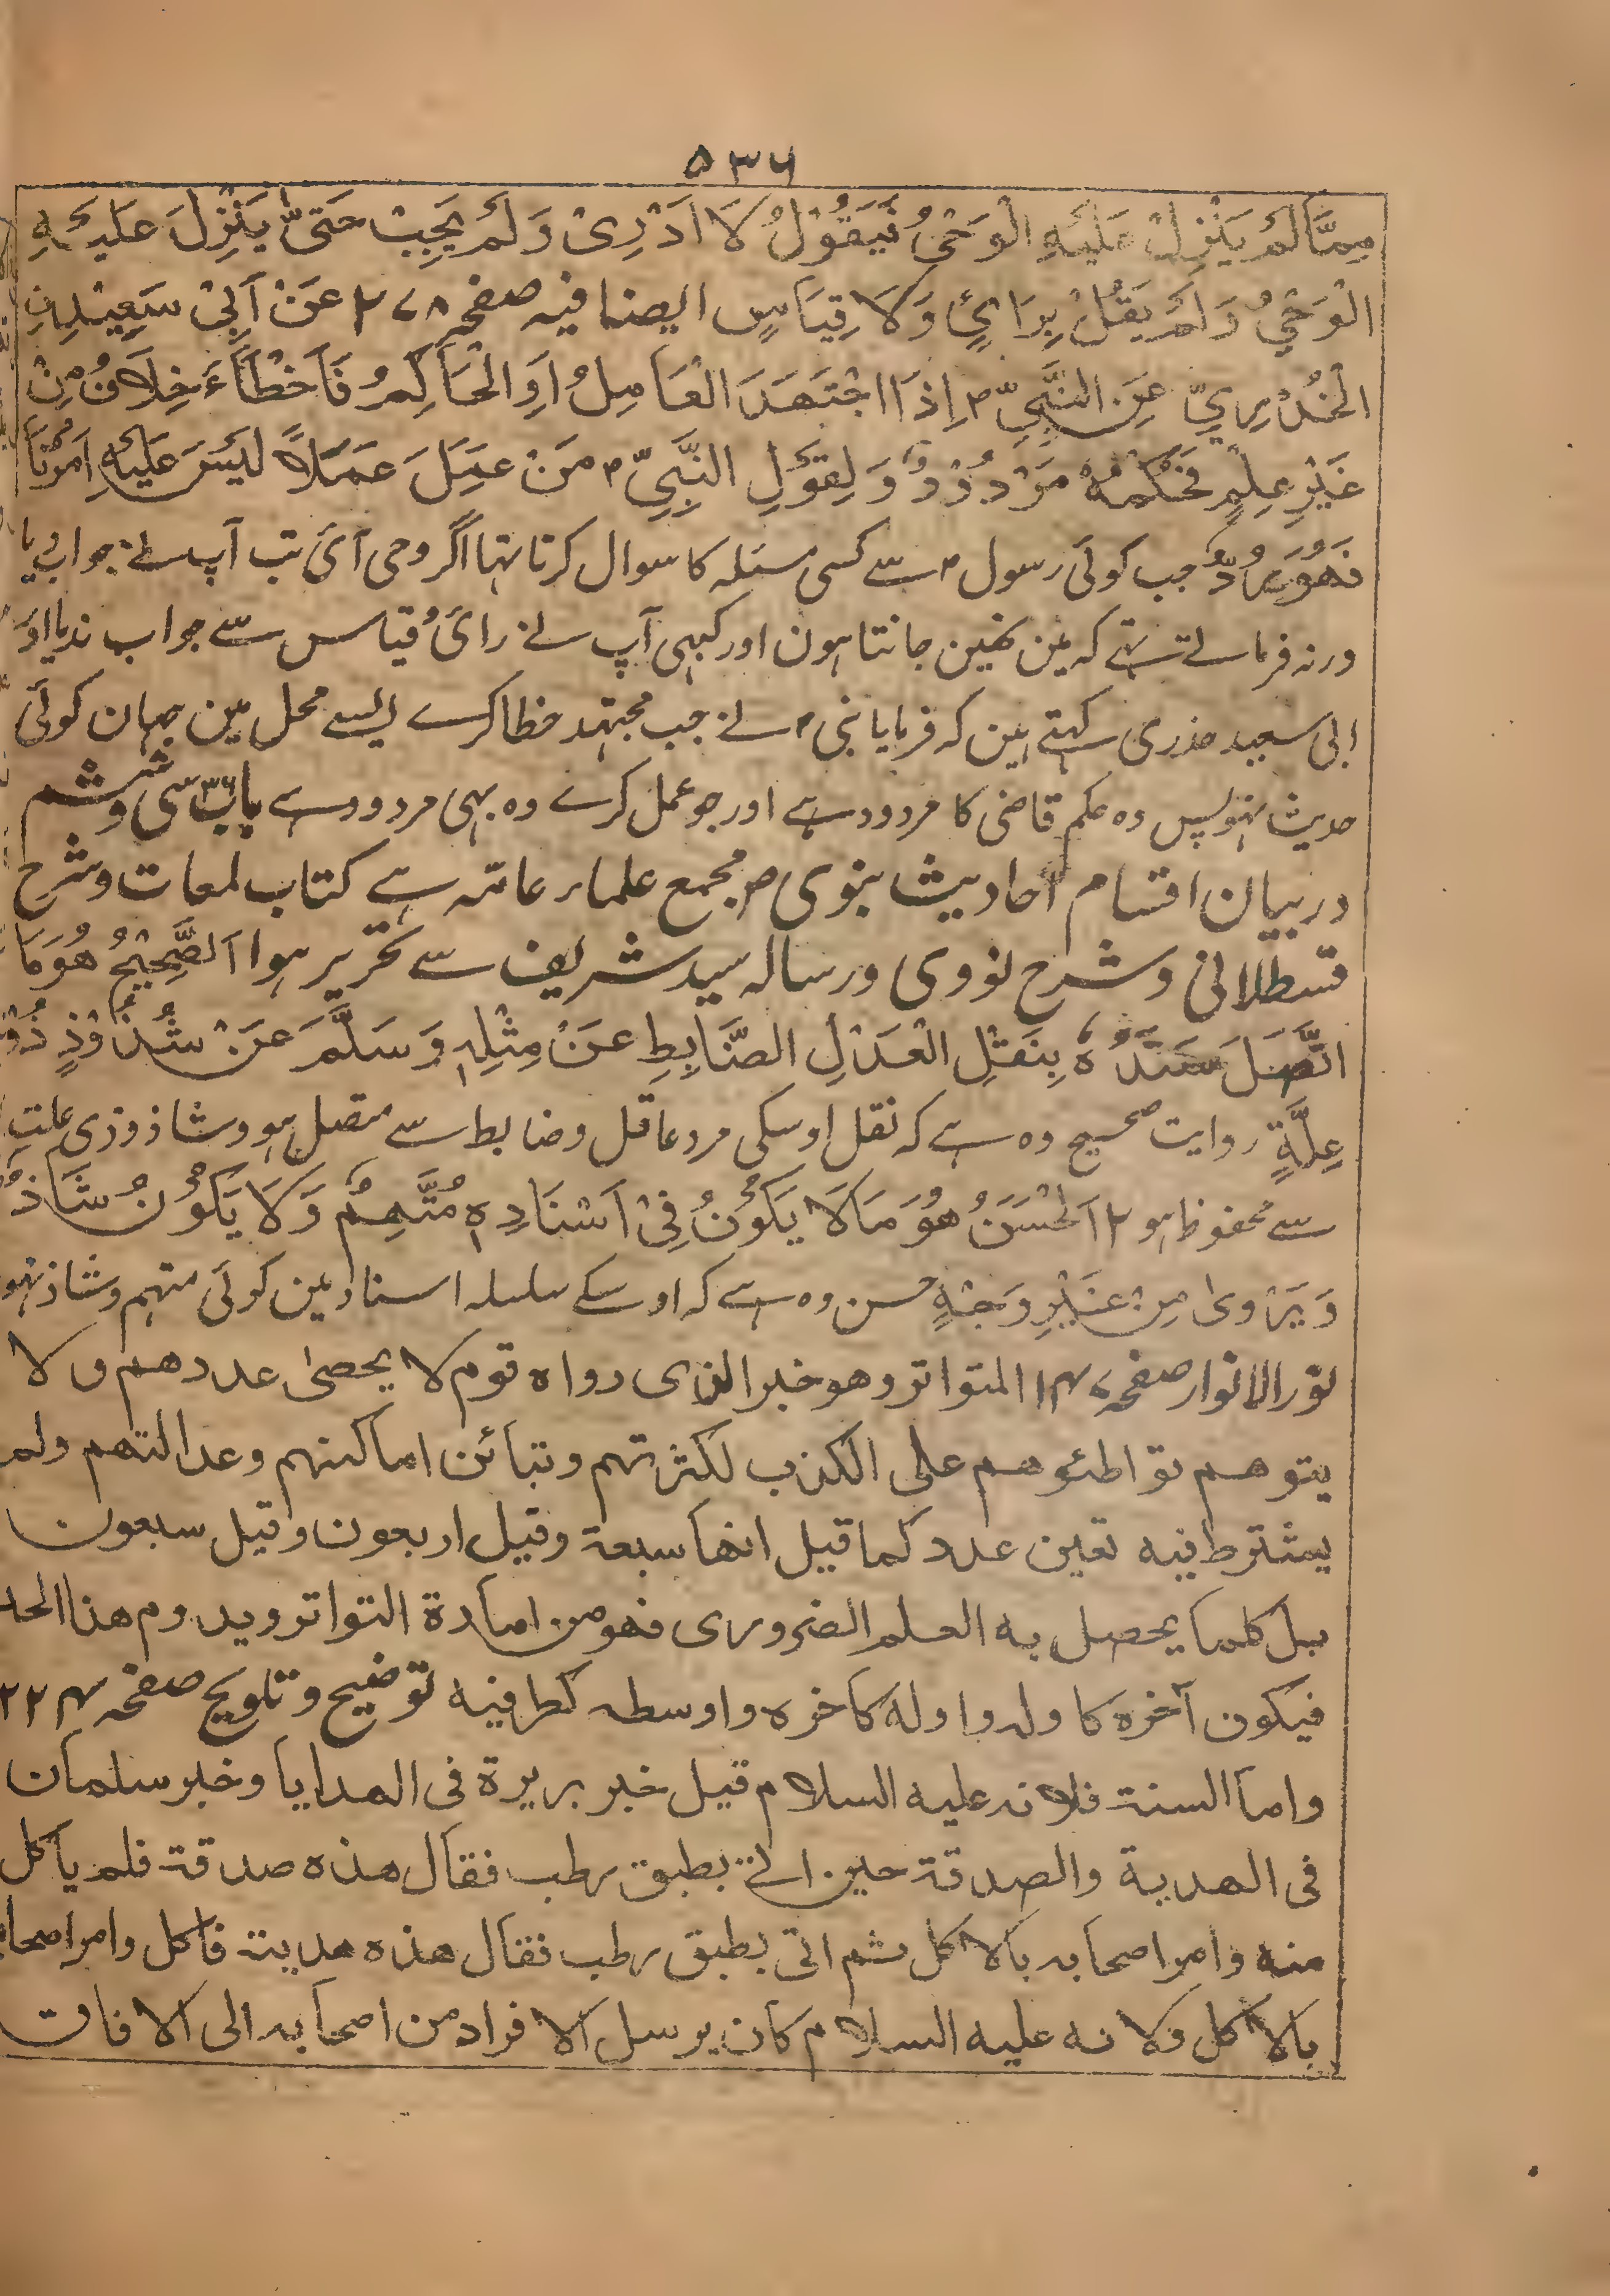 ۵۳۶
مِمَّا لَمْ يَنْزِلْ عَلَيْهِ الْوَحْيُ فَيَقُوْلُ لَا اَدْرِىْ وَلَمْ يُجِبْ حَتّٰى يَنْزِلَ عَلَيْهِ
الْوَحْيُ وَلَمْ يَقُلْ بِرَائٍ وَلَا قِيَاسٍ ایضا فیہ صفحہ ۲۷۸ عَنْ اَبِىْ سَعِيْدِنِ
الْخُدْرِيِّ عَنِ النَّبِيِّ ۴ اِذَا اجْتَهَدَ الْعَامِلُ اَوِ الْحَاكِمُ فَاَخْطَاَءَ خِلَافُ مِنْ
غَيْرِ عِلْمٍ فَحُكْمُهٗ مَرْدُوْدٌ وَلِقَوْلِ النَّبِيِّ ۴ مَنْ عَمِلَ عَمَلًا لَيْسَ عَلَيْهِ اَمْرُنَا
فَهُوَ رَدٌّ جب کوئی رسول ۴ سے کسی مسئلہ کا سوال کرتا تہا اگر وحی آئی تب آپ نے جواب دیا
ورنہ فرماتے تہے کہ مین نہین جانتا ہون اور کبہی آپ نے رائ و قیاس سے جواب ندیا اور
ابی سعید خدری کہتے ہین کہ فرمایا نبی ۴ نے جب مجتہد خطا کرے ایسے محل مین جہان کوئی
حدیث نہو پس وہ حکم قاضی کا مردود ہے اور جو عمل کرے وہ بہی مردود ہے باب ۳۶ سی و ششم
در بیان اقسام احادیث نبوی ص مجمع علماء عامّہ ہے کتاب لمعات و شرح
قسطلانی و شرح نووی و رسالہ سید شریف سے تحریر ہوا اَلصَّحِيْحُ هُوَ مَا
اتَّصَلَ سَنَدُهٗ بِنَقْلِ الْعَدْلِ الضَّابِطِ عَنْ مِثْلِهٖ وَسَلَّمَ عَنْ شُذُوْذٍ ذُوْ
عِلَّةٍ روایت صحیح وہ ہے کہ نقل اوسکی مرد عاقل و ضابط سے متصل ہو و شاذ و ذی علت
سے محفوظ ہو ۲ اَلْحَسَنُ هُوَ مَا لَا يَكُوْنُ فِىْ اَسْنَادِهٖ مُتَّهِمٌ وَلَا يَكُوْنُ شَاذٌ
وَيَرْوىٰ مِنْ غَيْرِ وَجْهٍ حسن وہ ہے کہ اوسکے سلسلہ اسناد مین کوئی متہم و شاذ نہو
نور الانوار صفحہ ۱۴۷ المتواتر وهو خبر الذى رواه قوم لا يحصىٰ عددهم ولا
يتوهم تواطئوهم على الكذب لكثرتهم وتبائن اماكنهم وعدالتهم ولم
يشترط فيه تعين عدد كما قيل انها سبعة وقيل اربعون وقيل سبعون
بل كلما يحصل به العلم الضرورى فهو من امارة التواتر ويدوم هذا الحد
فيكون آخره كاوله واوله كاخره واوسطه كطرفيه توضیح و تلویح صفحہ ۲۲۴
واما السنة فلانه عليه السلام قيل خبر بريرة فى الهدايا وخبر سلمان
فى الهدية والصدقة حين اتى بطبق رطب فقال هذه صدقة فلم ياكل
منه وامر اصحابه بالاكل ثم اتى بطبق رطب فقال هذه هدية فاكل وامر اصحابه
بالاكل ولانه عليه السلام كان يرسل الافراد من اصحابه الى الافات